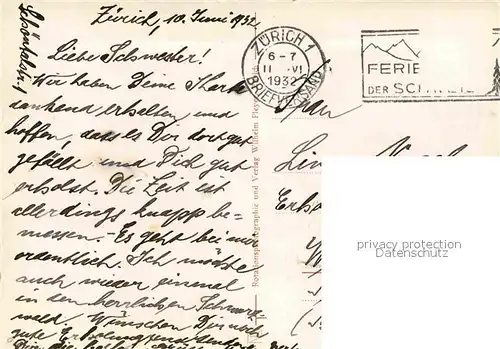 Zürich, 10. Juni 1932
Liebe Schwester!
Wir haben Deine Karte
dankend erhalten und
hoffen, dass es Dir dort gut
gefällt und Dich gut
erholst. Die Zeit ist
allerdings knapp be-
messen. - Es geht bei mir
ordentlich. Ich möchte
auch wieder einmal
in den herrlichen Schwarz
wald. Wünschen Dir noch
gute
ZÜRICH 1
6-7
11. VI
1932
BRIEFVERSAND
FERIE
DER SCHWEIZ
Frau
Rotationsphotographie und Verlag Wilhelm
privacy protection
Datenschutz